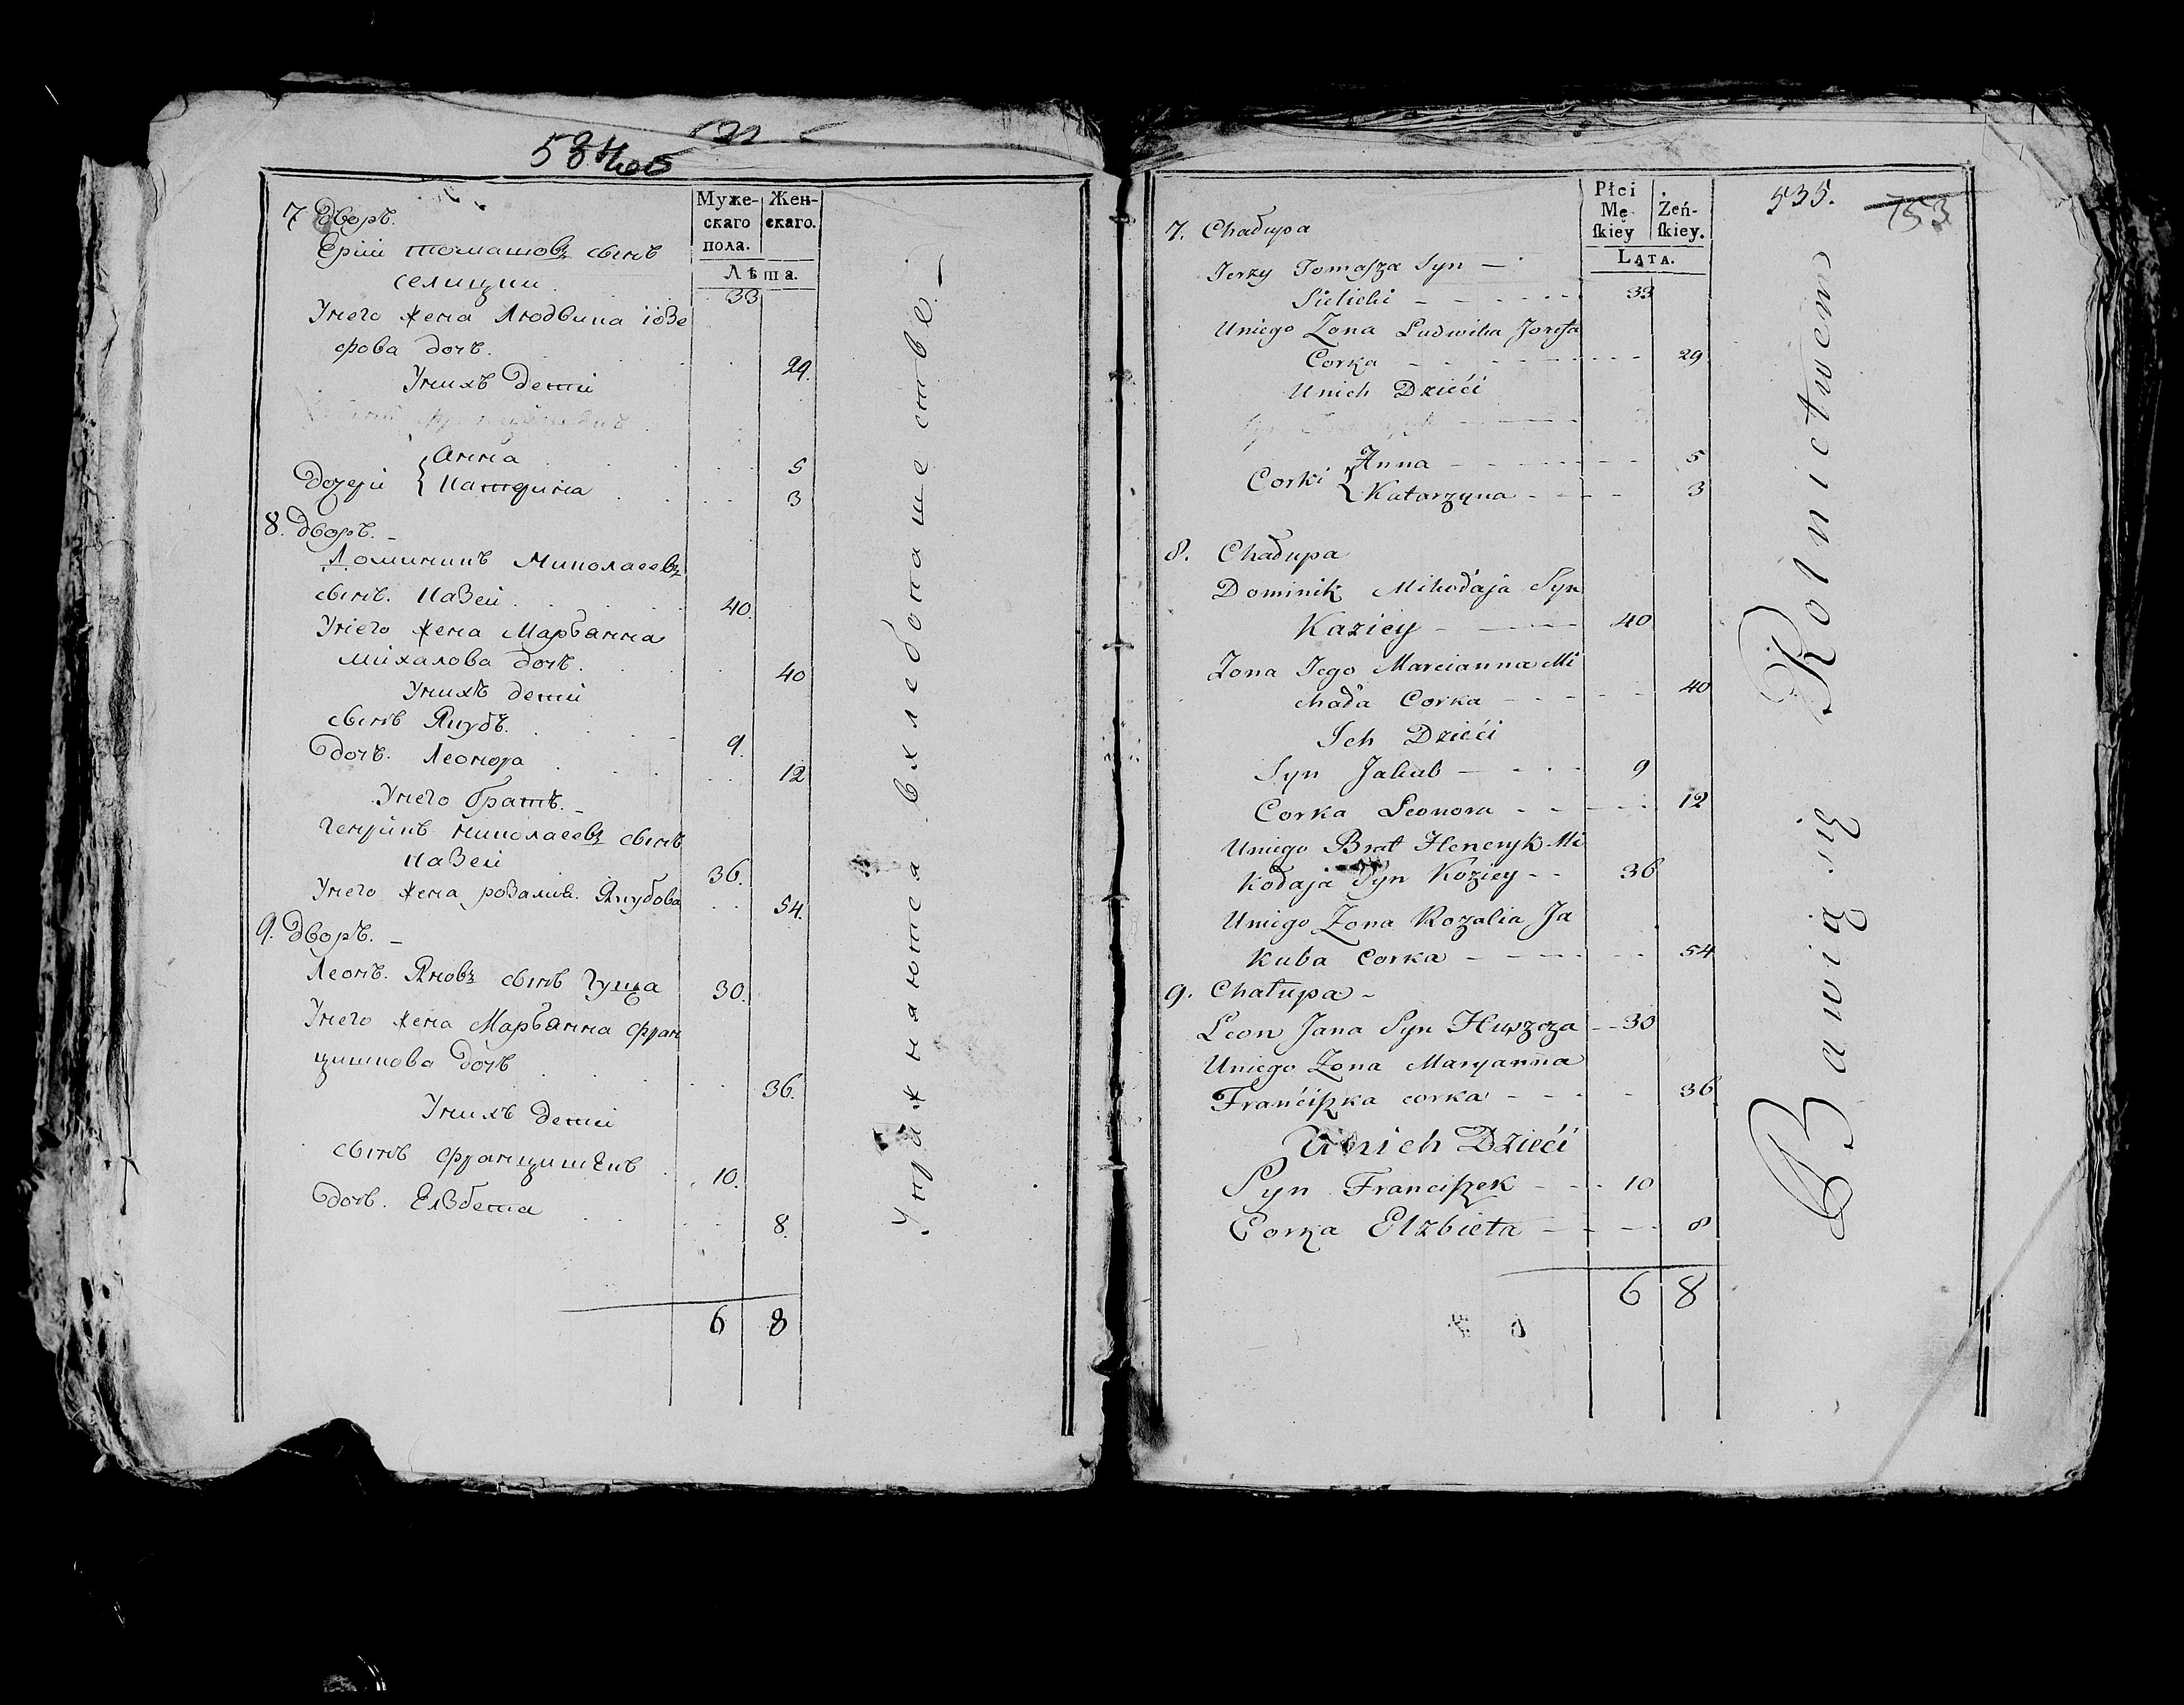 534 об
Муже-
скаго
пола.
Жен-
скаго.
Лѣта.
7 Дворъ.
Ерiй томашовъ сынъ
селицки 33
Унего жена Людвика iозе
фова дочъ. 29.
Унихъ детiй
Дочерi { Анна 5
Катерина 3
8. Дворъ.
Доминикъ Миколаевъ
сынъ. Казей 40.
Унiего жена Марьянна
михалова дочъ. 40
Унихъ детiй
сынъ Якубъ. 9.
Дочъ. Леонора 12
Унего братъ.
Генрикъ николаевъ сынъ
Казей 36.
Унего жена розалия. Якубова 54.
9. Дворъ.
Леонъ. Яновъ сынъ Гуща 30.
Унего жена Марьянна фран
цишкова дочъ 36.
Унихъ детiй
сынъ францишекъ 10.
Дочъ. Елзбета 8.
6 8
Упражняются вхлебопашестве.
535.
753
Płci
Mę
ſkiey
Żeń-
ſkiey.
Lata.
7. Chałupa
Jerzy Tomaſza Syn
Sielicki 33
Uniego Zona Ludwika Jozefa
Corka 29
Unich Dzieći
Corki { Anna 5
Katarzyna 3
8. Chałupa
Dominik Mikołaja Syn
Kaziey 40
Zona Jego Marcianna Mi
chała Corka 40
Ich Dzieći
Syn Jakub 9
Corka Leonora 12
Uniego Brat Heneryk Mi
kołaja Syn Koziey 36
Uniego Zona Rozalia Ja
kuba Corka 54
9. Chałupa
Leon Jana Syn Huszcza 30
Uniego Zona Maryanna
Franćiſzka corka 36
Unich Dzieći
Syn Franciſzek 10
Corka Elzbieta 8
6 8
Bawią się Rolnictwem